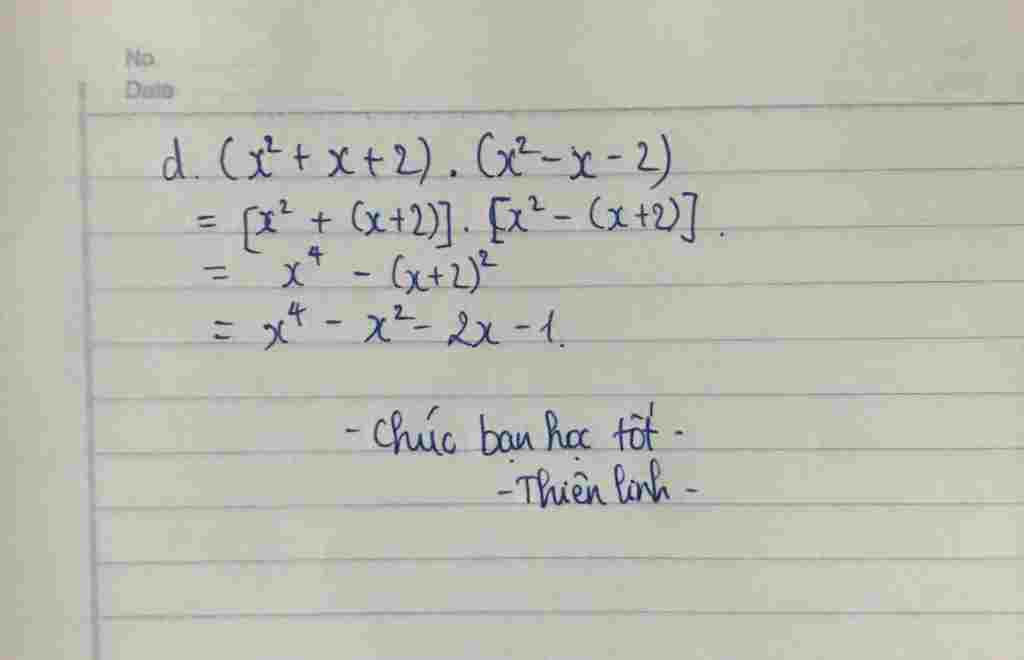 No.
Date
d. (x² + x + 2) . (x² - x - 2)
= [x² + (x+2)] . [x² - (x+2)].
= x⁴ - (x+2)²
= x⁴ - x² - 2x - 1.
- Chúc bạn học tốt -
- Thiên linh -